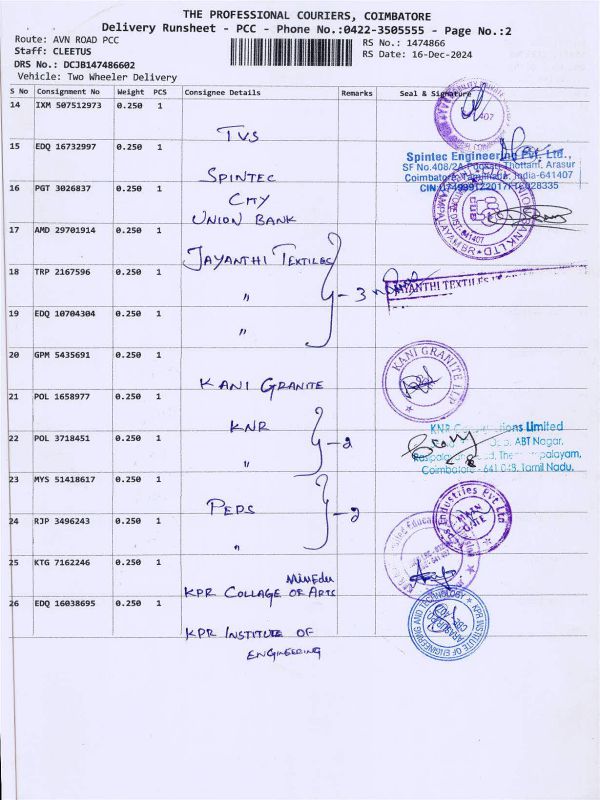 THE PROFESSIONAL COURIERS, COIMBATORE
Delivery Runsheet - PCC - Phone No.:0422-3505555 - Page No.:2
Route: AVN ROAD PCC
Staff: CLEETUS
DRS No.: DCJB147486602
Vehicle: Two Wheeler Delivery
RS No.: 1474866
RS Date: 16-Dec-2024
S No Consignment No Weight PCS Consignee Details Remarks Seal & Signature
14 IXM 507512973 0.250 1 TVS
15 EDQ 16732997 0.250 1 SPINTEC
Spintec Engineering Pvt. Ltd.,
SF No.408/2A, Thottam, Arasur
Coimbatore, Tamilnadu, India-641407
16 PGT 3026837 0.250 1 CITY
UNION BANK
17 AMD 29701914 0.250 1 JAYANTHI TEXTILES
18 TRP 2167596 0.250 1 " - 3
JAYANTHI TEXTILES
19 EDQ 10704304 0.250 1 "
20 GPM 5435691 0.250 1 KANI GRANITE
KANI GRANITE LLP
21 POL 1658977 0.250 1 KNR
KNR Limited
ABT Nagar,
Coimbatore - 641 048. Tamil Nadu.
22 POL 3718451 0.250 1 " - 2
23 MYS 51418617 0.250 1 PEPS - 2
Industries Pvt Ltd
MAIN GATE
24 RJP 3496243 0.250 1 "
25 KTG 7162246 0.250 1 KPR COLLAGE OF ARTS
26 EDQ 16038695 0.250 1 KPR INSTITUTE OF
ENGINEERING
KPR INSTITUTE OF ENGINEERING AND TECHNOLOGY